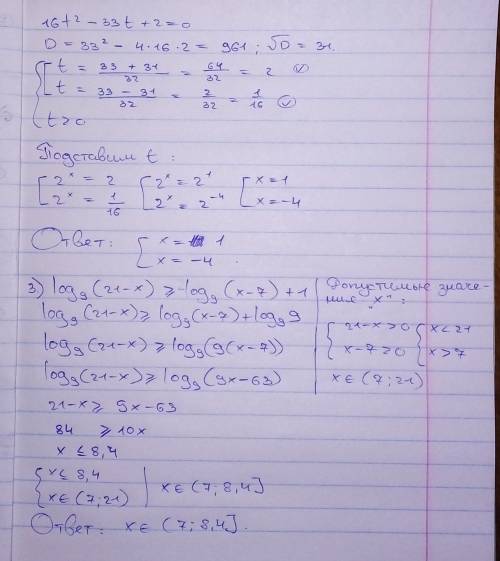 16t² - 33t + 2 = 0
D = 33² - 4·16·2 = 961; √D = 31.
t = (33 + 31)/32 = 64/32 = 2
t = (33 - 31)/32 = 2/32 = 1/16
t > 0
Подставим t:
2ˣ = 2 2ˣ = 2¹ x = 1
2ˣ = 1/16 2ˣ = 2⁻⁴ x = -4
Ответ: x = 1
x = -4.
3) log₉(21-x) ≥ log₉(x-7) + 1
log₉(21-x) ≥ log₉(x-7) + log₉9
log₉(21-x) ≥ log₉(9(x-7))
log₉(21-x) ≥ log₉(9x-63)
21-x ≥ 9x-63
84 ≥ 10x
x ≤ 8,4
Допустимые значе-
ния "x":
21-x > 0 x < 21
x-7 > 0 x > 7
x ∈ (7; 21)
x ≤ 8,4
x ∈ (7; 21) x ∈ (7; 8,4]
Ответ: x ∈ (7; 8,4].